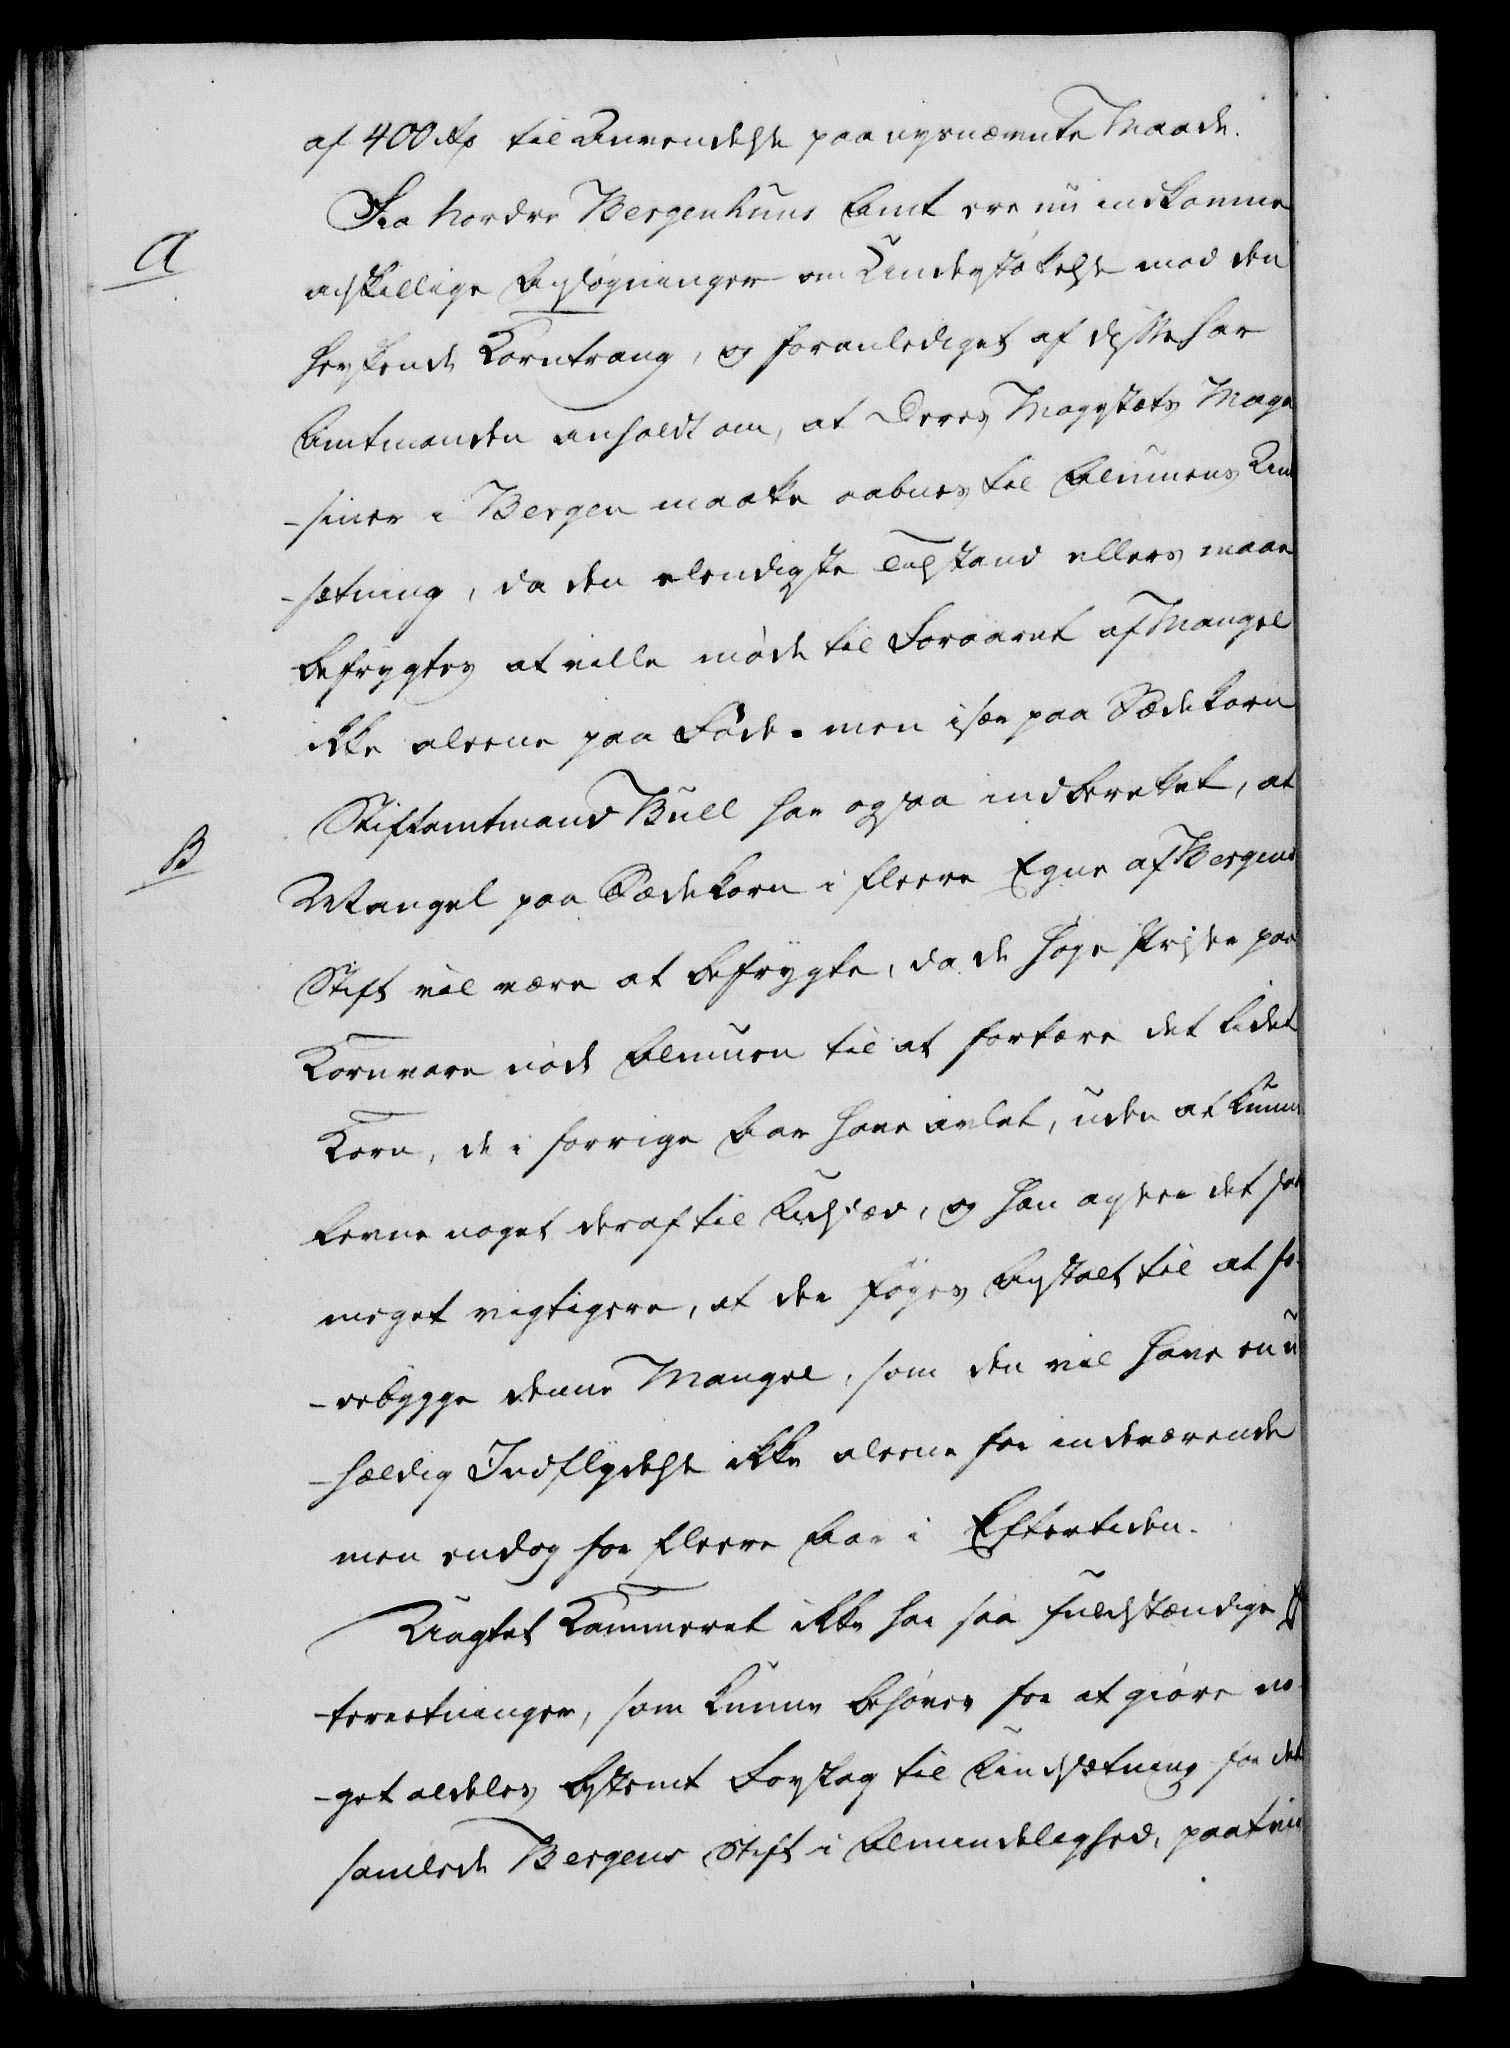 af 400 rd til Anvendelse paa nysnævnte Maade.
A
Fra Nordre Bergenhuus Amt ere nu indkomne
adskillige Ansøgninger om Understøttelse mod den
herskende Korntrang, og foranlediget af disse har
Amtmanden anholdt om, at Deres Majestæts Maga
-siner i Bergen maatte aabnes til Almuens Und
-sætning, da den elendigste Tilstand ellers maae
befrygtes at ville møde til Foraaret af Mangel
ikke aleene paa Føde- men især paa Sædekorn
B
Stiftamtmand Bull har ogsaa indberettet, at
Mangel paa Sædekorn i fleere Egne af Bergens
Stift vil være at befrygte, da de høye Priser paa
Kornvare nøde Almuen til at fortære det lidet
Korn, de i forrige Aar have avlet, uden at kunne
levne noget deraf til Udsæd, og han agter det saa
meget vigtigere, at der føyes Anstalt til at fo-
-rebygge denne Mangel, som den vil have en u
-heldig Indflydelse ikke aleene for indeværende
men endog for fleere Aar i Eftertiden.
Uagtet Kammeret ikke har saa fuldstændige Ef
-terretninger, som kunne behøves for at giøre no-
-get aldeles bestemt Forslag til Undsætning for det
samlede Bergens Stift i Almindelighed, paatvin